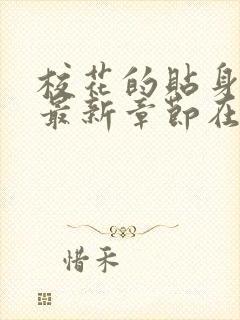 校花的贴身
最新章节在
惜禾